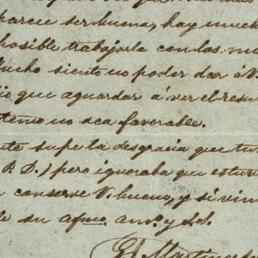 parece ser buena, hay much
posible trabajarla con las m
ucho siento no poder dar á V.
que aguardar á ver el resu
temo no sea favorable.
supe la desgrasia que tu
pero ignoraba que estuv
conserve V. bueno, y si vin
su afmo. amo. y s.s.
Martinez